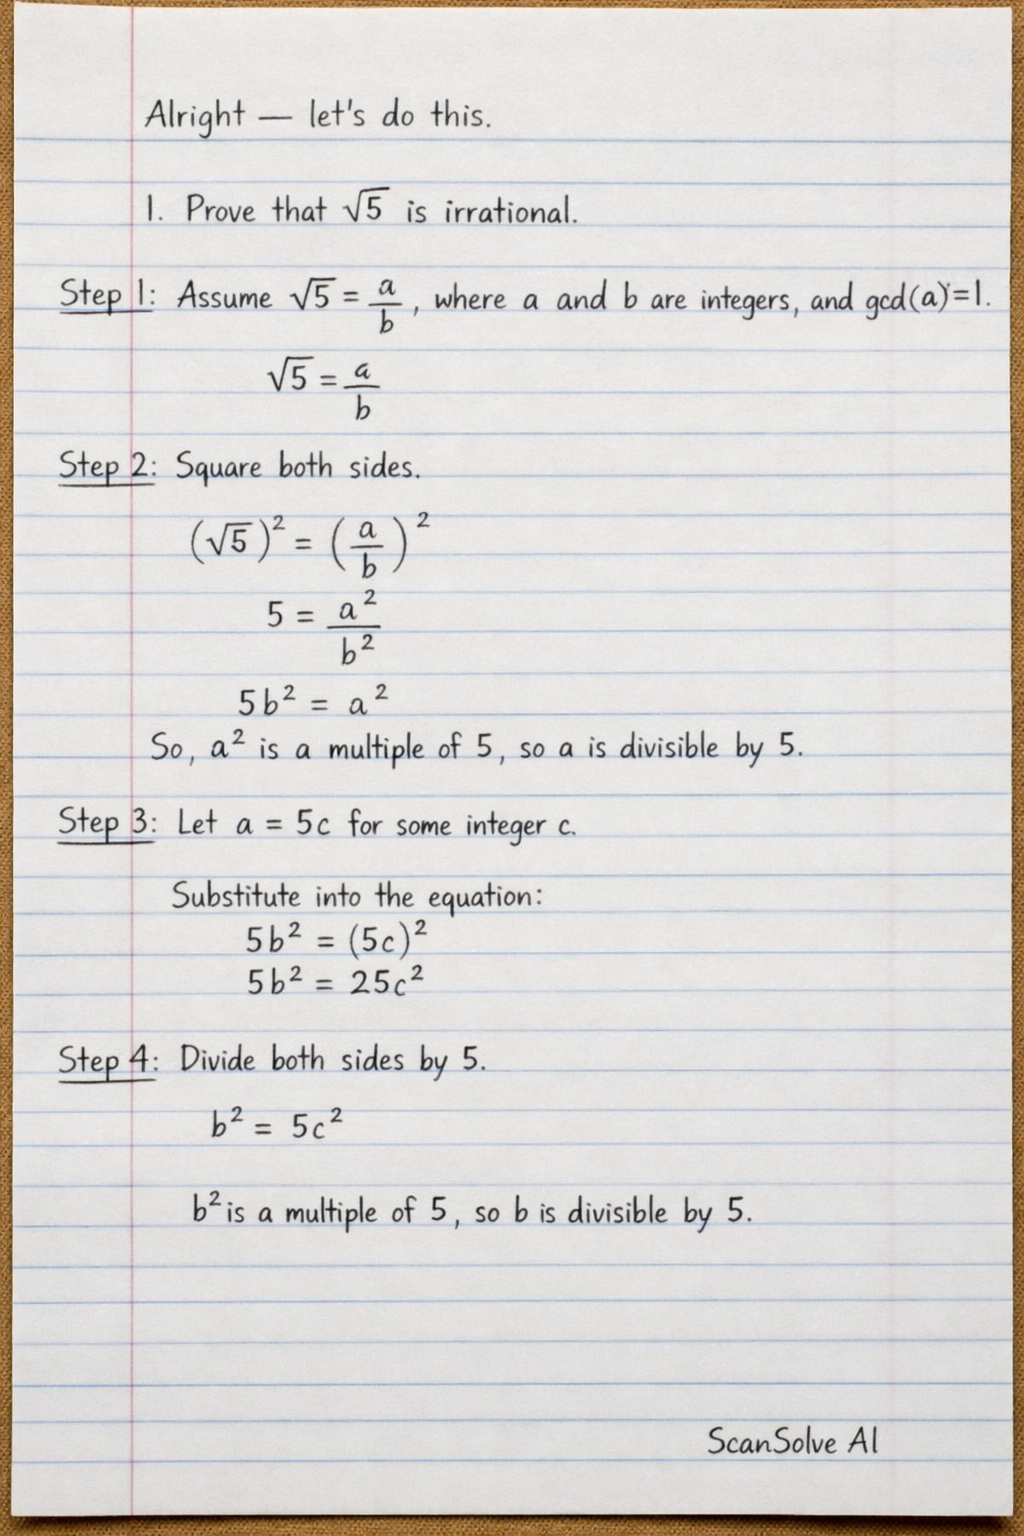 Alright — let's do this.
1. Prove that √5 is irrational.
Step 1: Assume √5 = a/b, where a and b are integers, and gcd(a)=1.
√5 = a/b
Step 2: Square both sides.
(√5)² = (a/b)²
5 = a²/b²
5b² = a²
So, a² is a multiple of 5, so a is divisible by 5.
Step 3: Let a = 5c for some integer c.
Substitute into the equation:
5b² = (5c)²
5b² = 25c²
Step 4: Divide both sides by 5.
b² = 5c²
b² is a multiple of 5, so b is divisible by 5.
ScanSolve AI